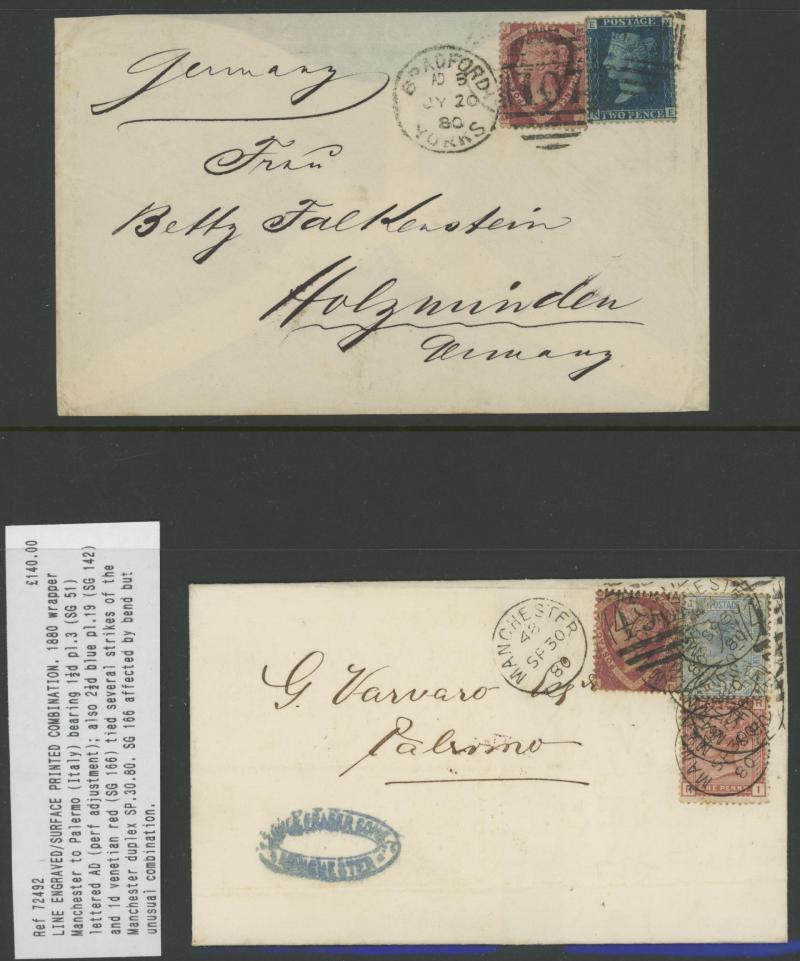 Germany
Frau
Betty Falkenstein
Holzminden
Germany
BRADFORD YORKS
AD 3
JY 20
80
POSTAGE
TWO PENCE
Ref 72492 £140.00
LINE ENGRAVED/SURFACE PRINTED COMBINATION. 1880 wrapper
Manchester to Palermo (Italy) bearing 1½d pl.3 (SG 51)
lettered AD (perf adjustment); also 2½d blue pl.19 (SG 142)
and 1d venetian red (SG 166) tied several strikes of the
Manchester duplex SP.30.80. SG 166 affected by bend but
unusual combination.
G. Varvaro Esqr
Palermo
MANCHESTER
48
SP 30
80
ONE PENNY
MANCHESTER